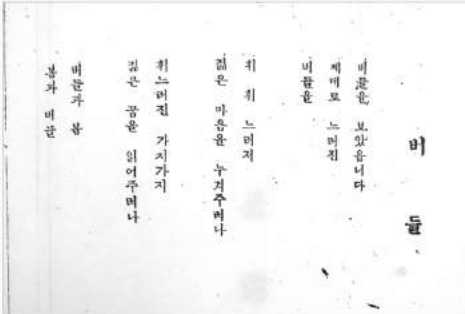 버들
버들을 보았읍니다
제대로 느러진
버들을
휘 휘 느러저
젊은 마음을 누겨주려나
휘느러진 가지가지
깊은 꿈을 읽어주려나
버들과 봄
봄과 버들